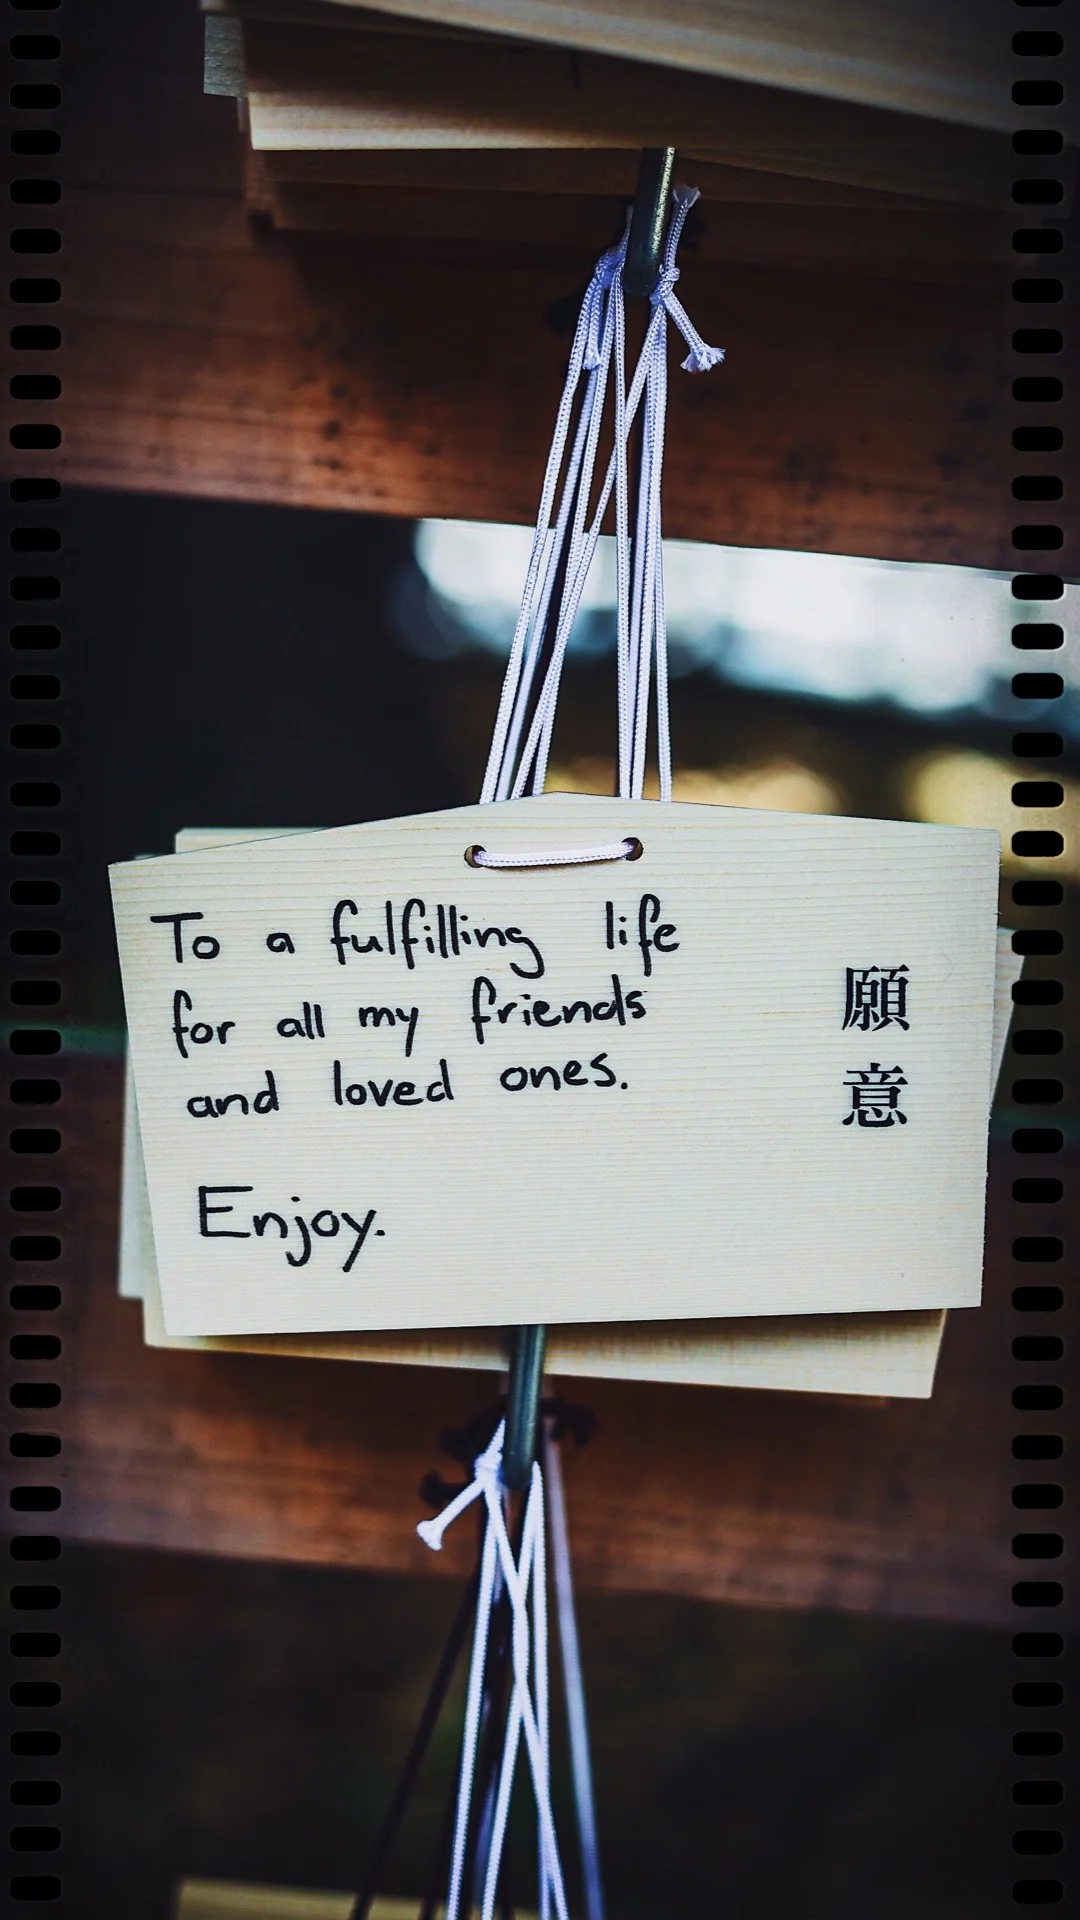 To a fulfilling life
for all my friends
and loved ones.
Enjoy.
願意